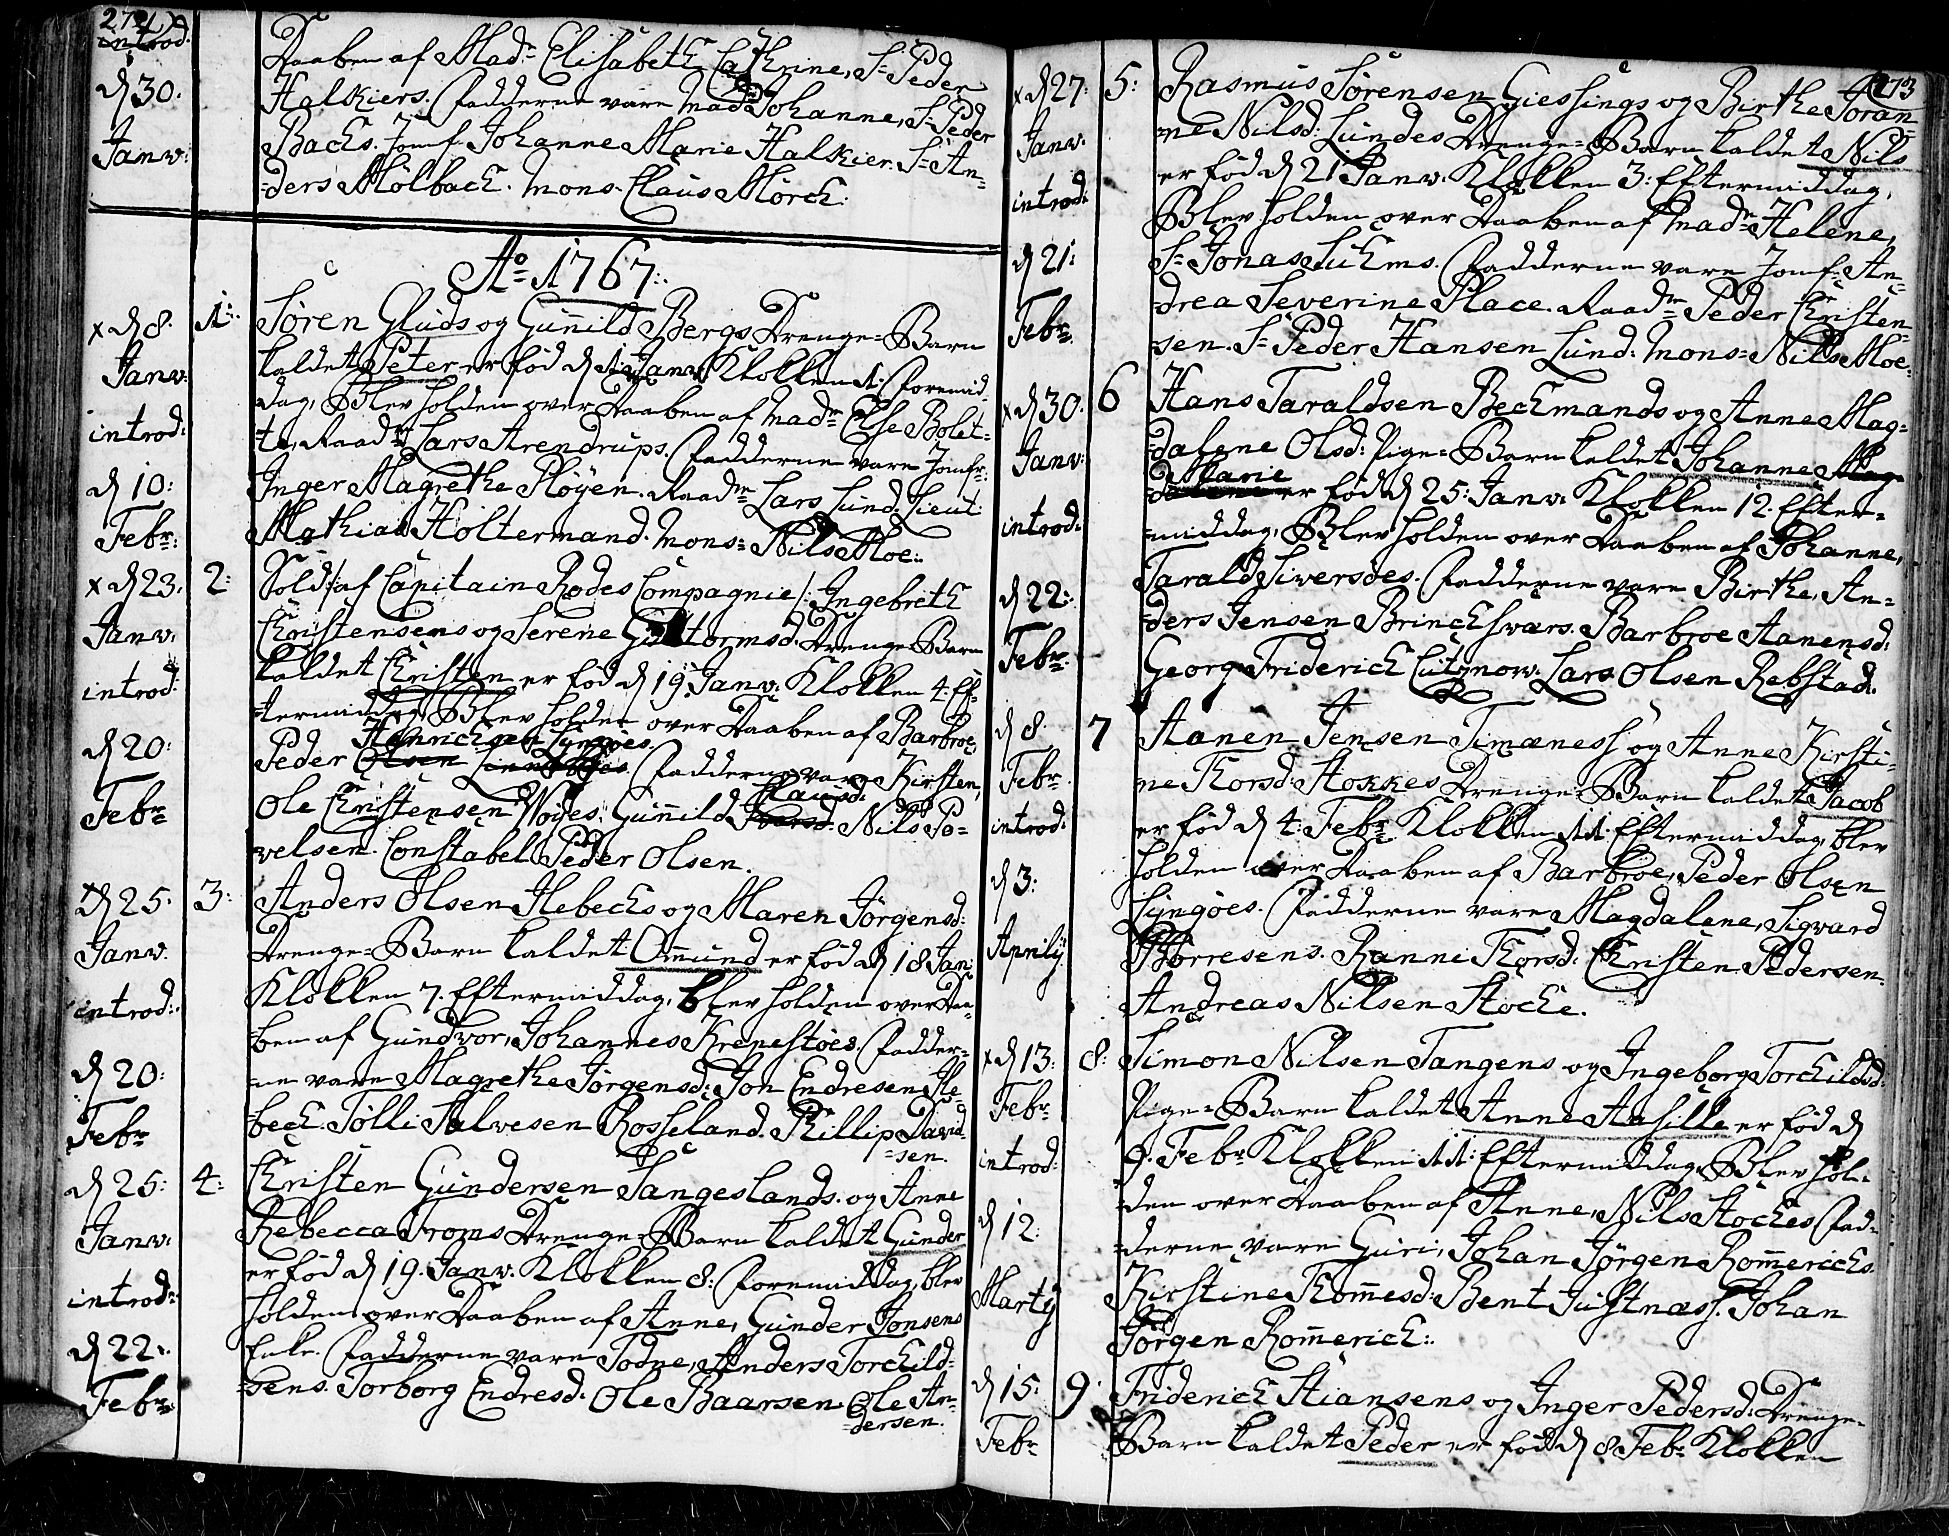 272
introd:
d 30.
Janv:
Daaben af Mad: Elisabeth Cathrine, Sr Peder
Halkiers. Fadderne vare Mad: Johanne, Sr Peder
Bachs. Jomf: Johanne Marie Halkier. Sr An-
ders Mölbach. Mons. Claus Mörch.
Ao 1767.
x d 8.
Janv:
introd:
d 10:
Febr:
1:
Sören Gluds og Gunnild Bergs Drenge-Barn
kaldet Peter er föd d 1 Janv: Klokken 1: Formid-
dag, Blev holden over Daaben af Madm Else Bolet-
te, Raadm Lars Arendrups. Fadderne vare Jomfr:
Inger Magrethe Plöyen. Raadm Lars Lund. Lieut:
Mathias Holtermand. Mons: Nils Moe.
x d 23.
Janv.
introd:
d 20:
Febr
2:
Sold: /: af Capitain Rodes Compagnie :/ Ingebreth
Christensens og Serene Guttormsd: Drenge-Barn
kaldet Christen er föd d 19 Janv: Klokken 4: Ef-
termiddag, Blev holden over Daaben af Barbroe
Henrichsen Lyngöes.
Peder Olsen Fadderne vare Kirsten,
Clausd:
Ole Christensen Nöyes. Gunnild Nils Po-
velsen. Constabel Peder Olsen.
x d 25.
Janv.
introd:
d 20:
Febr
3:
Anders Olsen Hebechs og Maren Jörgensd:
Drenge-Barn kaldet Ommund er föd d 18 Jan:
Klokken 7. Eftermiddag, blev holden over Daa-
ben af Gundvor, Johannes Krenestöes. Fadder-
ne vare Magrethe Jörgensd: Jon Endresen He-
bech. Tölli Salvesen Rosseland. Phillip David-
sen.
d 25:
Janv.
introd:
d 22:
Febr
4:
Christen Gundersen Sangeslands. og Anne
Rebecca Froms Drenge-Barn kaldet Gunder
er föd d 19. Janv. Klokken 8: Foremiddag, blev
holden over Daaben af Anne, Gunder Jonsens
Enke. Fadderne vare Todne, Anders Torchild-
sens. Torborg Endresd: Ole Baarsen. Ole An-
dersen.
273
x d 27:
Janv.
introd:
d 21:
Febr
5:
Rasmus Sörensen Giessings og Birthe Joran-
ne Nilsd: Lundes Drenge-Barn kaldet Nils
er föd d 21 Janv. Klokken 3: Eftermiddag,
Blev holden over Daaben af Madm Helene,
Sr Jonas Suhms. Fadderne vare Jomf: An-
drea Severine Place. Raadm Peder Christen-
sen. Sr Peder Hansen Lund. Mons: Nills Moe.
x d 30.
Janv:
introd:
d 22:
Febr.
6
Hans Taraldsen Bechmands og Anne Mag-
dalene Olsd: Pige-Barn kaldet Johanne Mag-
Marie
dalene er föd d 25: Janv: Klokken 12. Efter-
middag, Blev holden over Daaben af Johanne,
Tarald Siversöes. Fadderne vare Birthe, An-
ders Jensen Brinchsvers. Barbroe Aanensd:
Georg Friderich Lutznow. Lars Olsen Rebstad.
d 8
Febr.
introd:
d 3:
Aprily
7
Aanen Jensen Timeness og Anne Kirsti-
ne Thorsd: Stokkes Drenge-Barn kaldet Jacob
er föd d 4: Febr Klokken 11. Eftermiddag, blev
holden over Daaben af Barbroe, Peder Olsen
Lyngöes. Fadderne vare Magdalene, Sigvard
Börresens. Ranni Thorsd: Christen Pedersen.
Andreas Nilsen Stoche.
x d 13:
Febr.
introd:
d 12:
Marty
8:
Simon Nilsen Tangens og Ingeborg Torchildsd:
Pige-Barn kaldet Anne Aasille er föd d
9. Febr Klokken 11: Eftermiddag, Blev hol-
den over Daaben af Anne, Nils Stoches Fad-
derne vare Guri, Johan Jörgen Rommerichs.
Kirstine Thommesd: Bent Justnæss. Johan
Jörgen Rommerich.
d 15:
Febr
9.
Friderich Stiansens og Inger Pedersd: Drenge-
Barn kaldet Peder er föd d 8 Febr Klokken